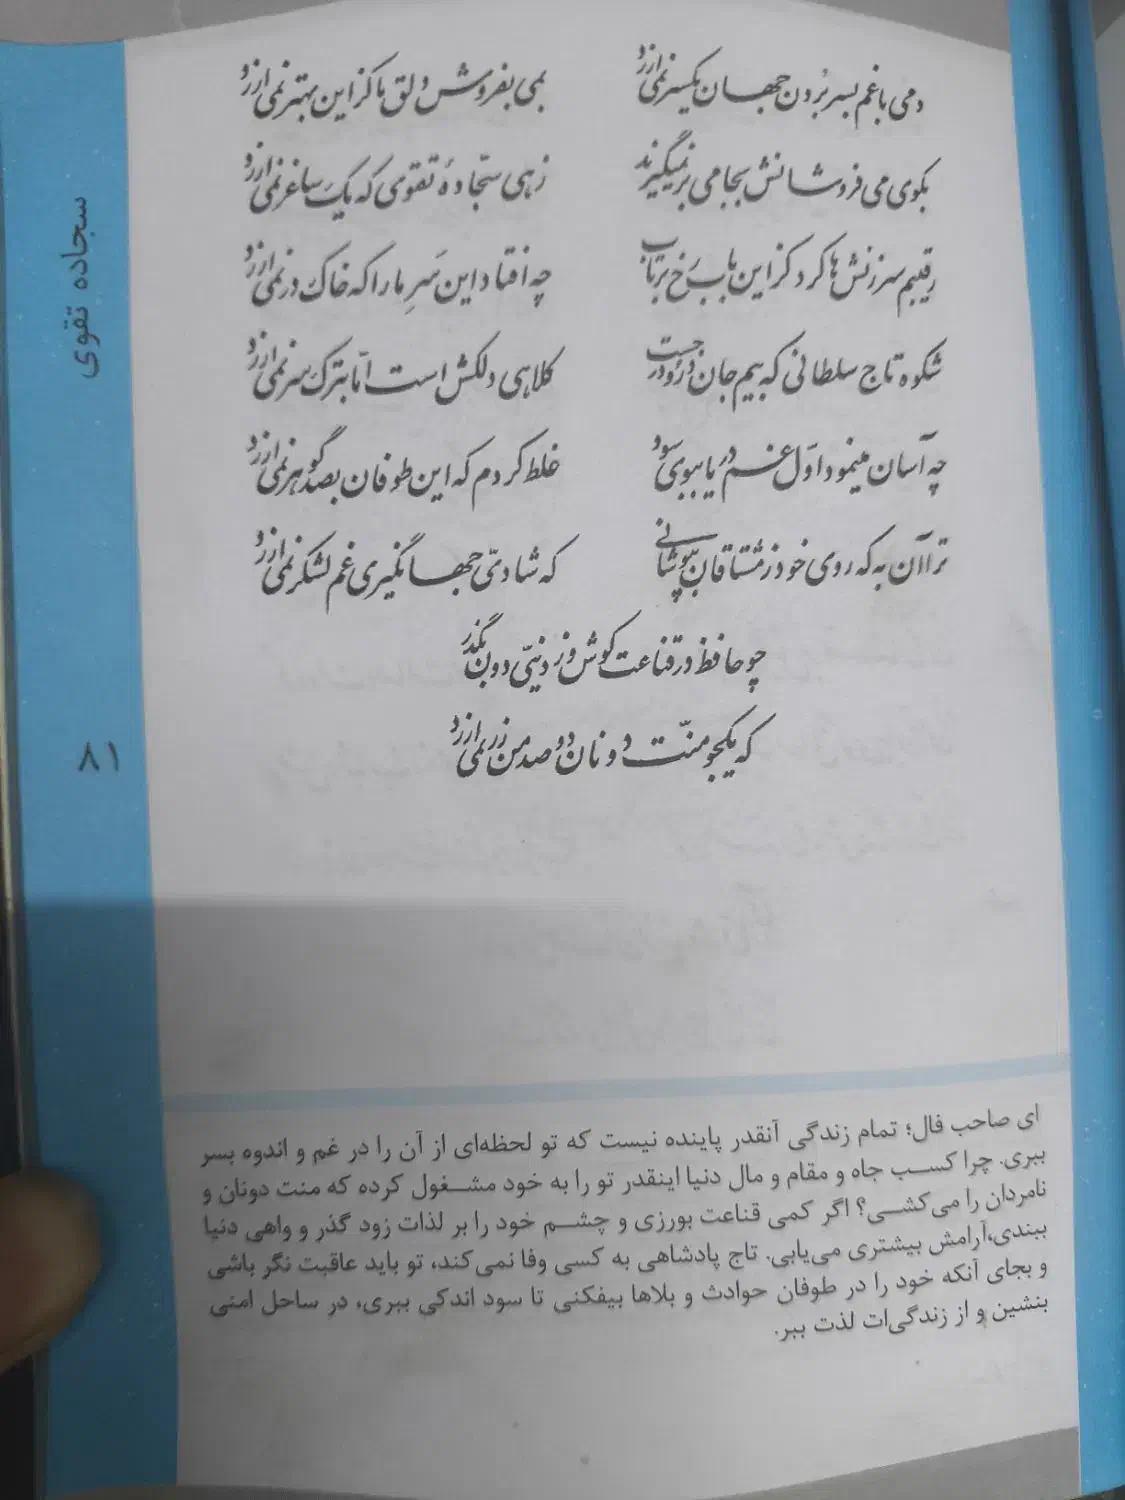 دمی با غم بسر بُردن جهان یکسر نمی‌ارزد
بمی بفروش دلق ما کزاین بهتر نمی‌ارزد
بکوی می فروشانش بجامی بر نمیگیرند
زهی سجّادهٔ تقوی که یک ساغر نمی‌ارزد
رقیبم سرزنش‌ها کرد کز این باب رُخ برتاب
چه افتاد این سَرِ ما را که خاک در نمی‌ارزد
شکوه تاج سلطانی که بیم جان درو درجست
کلاهی دلکش است امّا بترک سر نمی‌ارزد
چه آسان مینمود اوّل غم دریا ببوی سود
غلط کردم که این طوفان بصد گوهر نمی‌ارزد
ترا آن به که روی خود ز مشتاقان بپوشانی
که شادیّ جهانگیری غم لشکر نمی‌ارزد
چو حافظ در قناعت کوش وز دنیّی دون بگذر
که یکجو منّت دونان دو صد من زر نمی‌ارزد
سجاده تقوی
۸۱
ای صاحب فال؛ تمام زندگی آنقدر پاینده نیست که تو لحظه‌ای از آن را در غم و اندوه بسر
ببری. چرا کسب جاه و مقام و مال دنیا اینقدر تو را به خود مشغول کرده که منت دونان و
نامردان را می‌کشی؟ اگر کمی قناعت بورزی و چشم خود را بر لذات زود گذر و واهی دنیا
ببندی،آرامش بیشتری می‌یابی. تاج پادشاهی به کسی وفا نمی‌کند، تو باید عاقبت نگر باشی
و بجای آنکه خود را در طوفان حوادث و بلاها بیفکنی تا سود اندکی ببری، در ساحل امنی
بنشین و از زندگی‌ات لذت ببر.